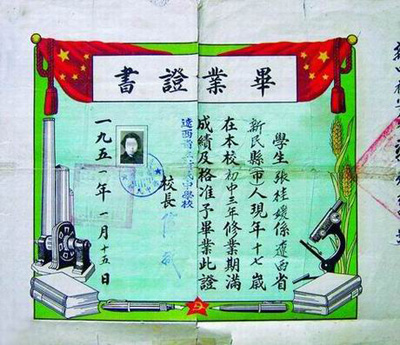 畢業證書
學生張桂媛係遼西省
新民縣市人現年十七歲
在本校初中三年修業期滿
成績及格准予畢業此證
遼西省
中學校
校長
一九五一年一月十五日